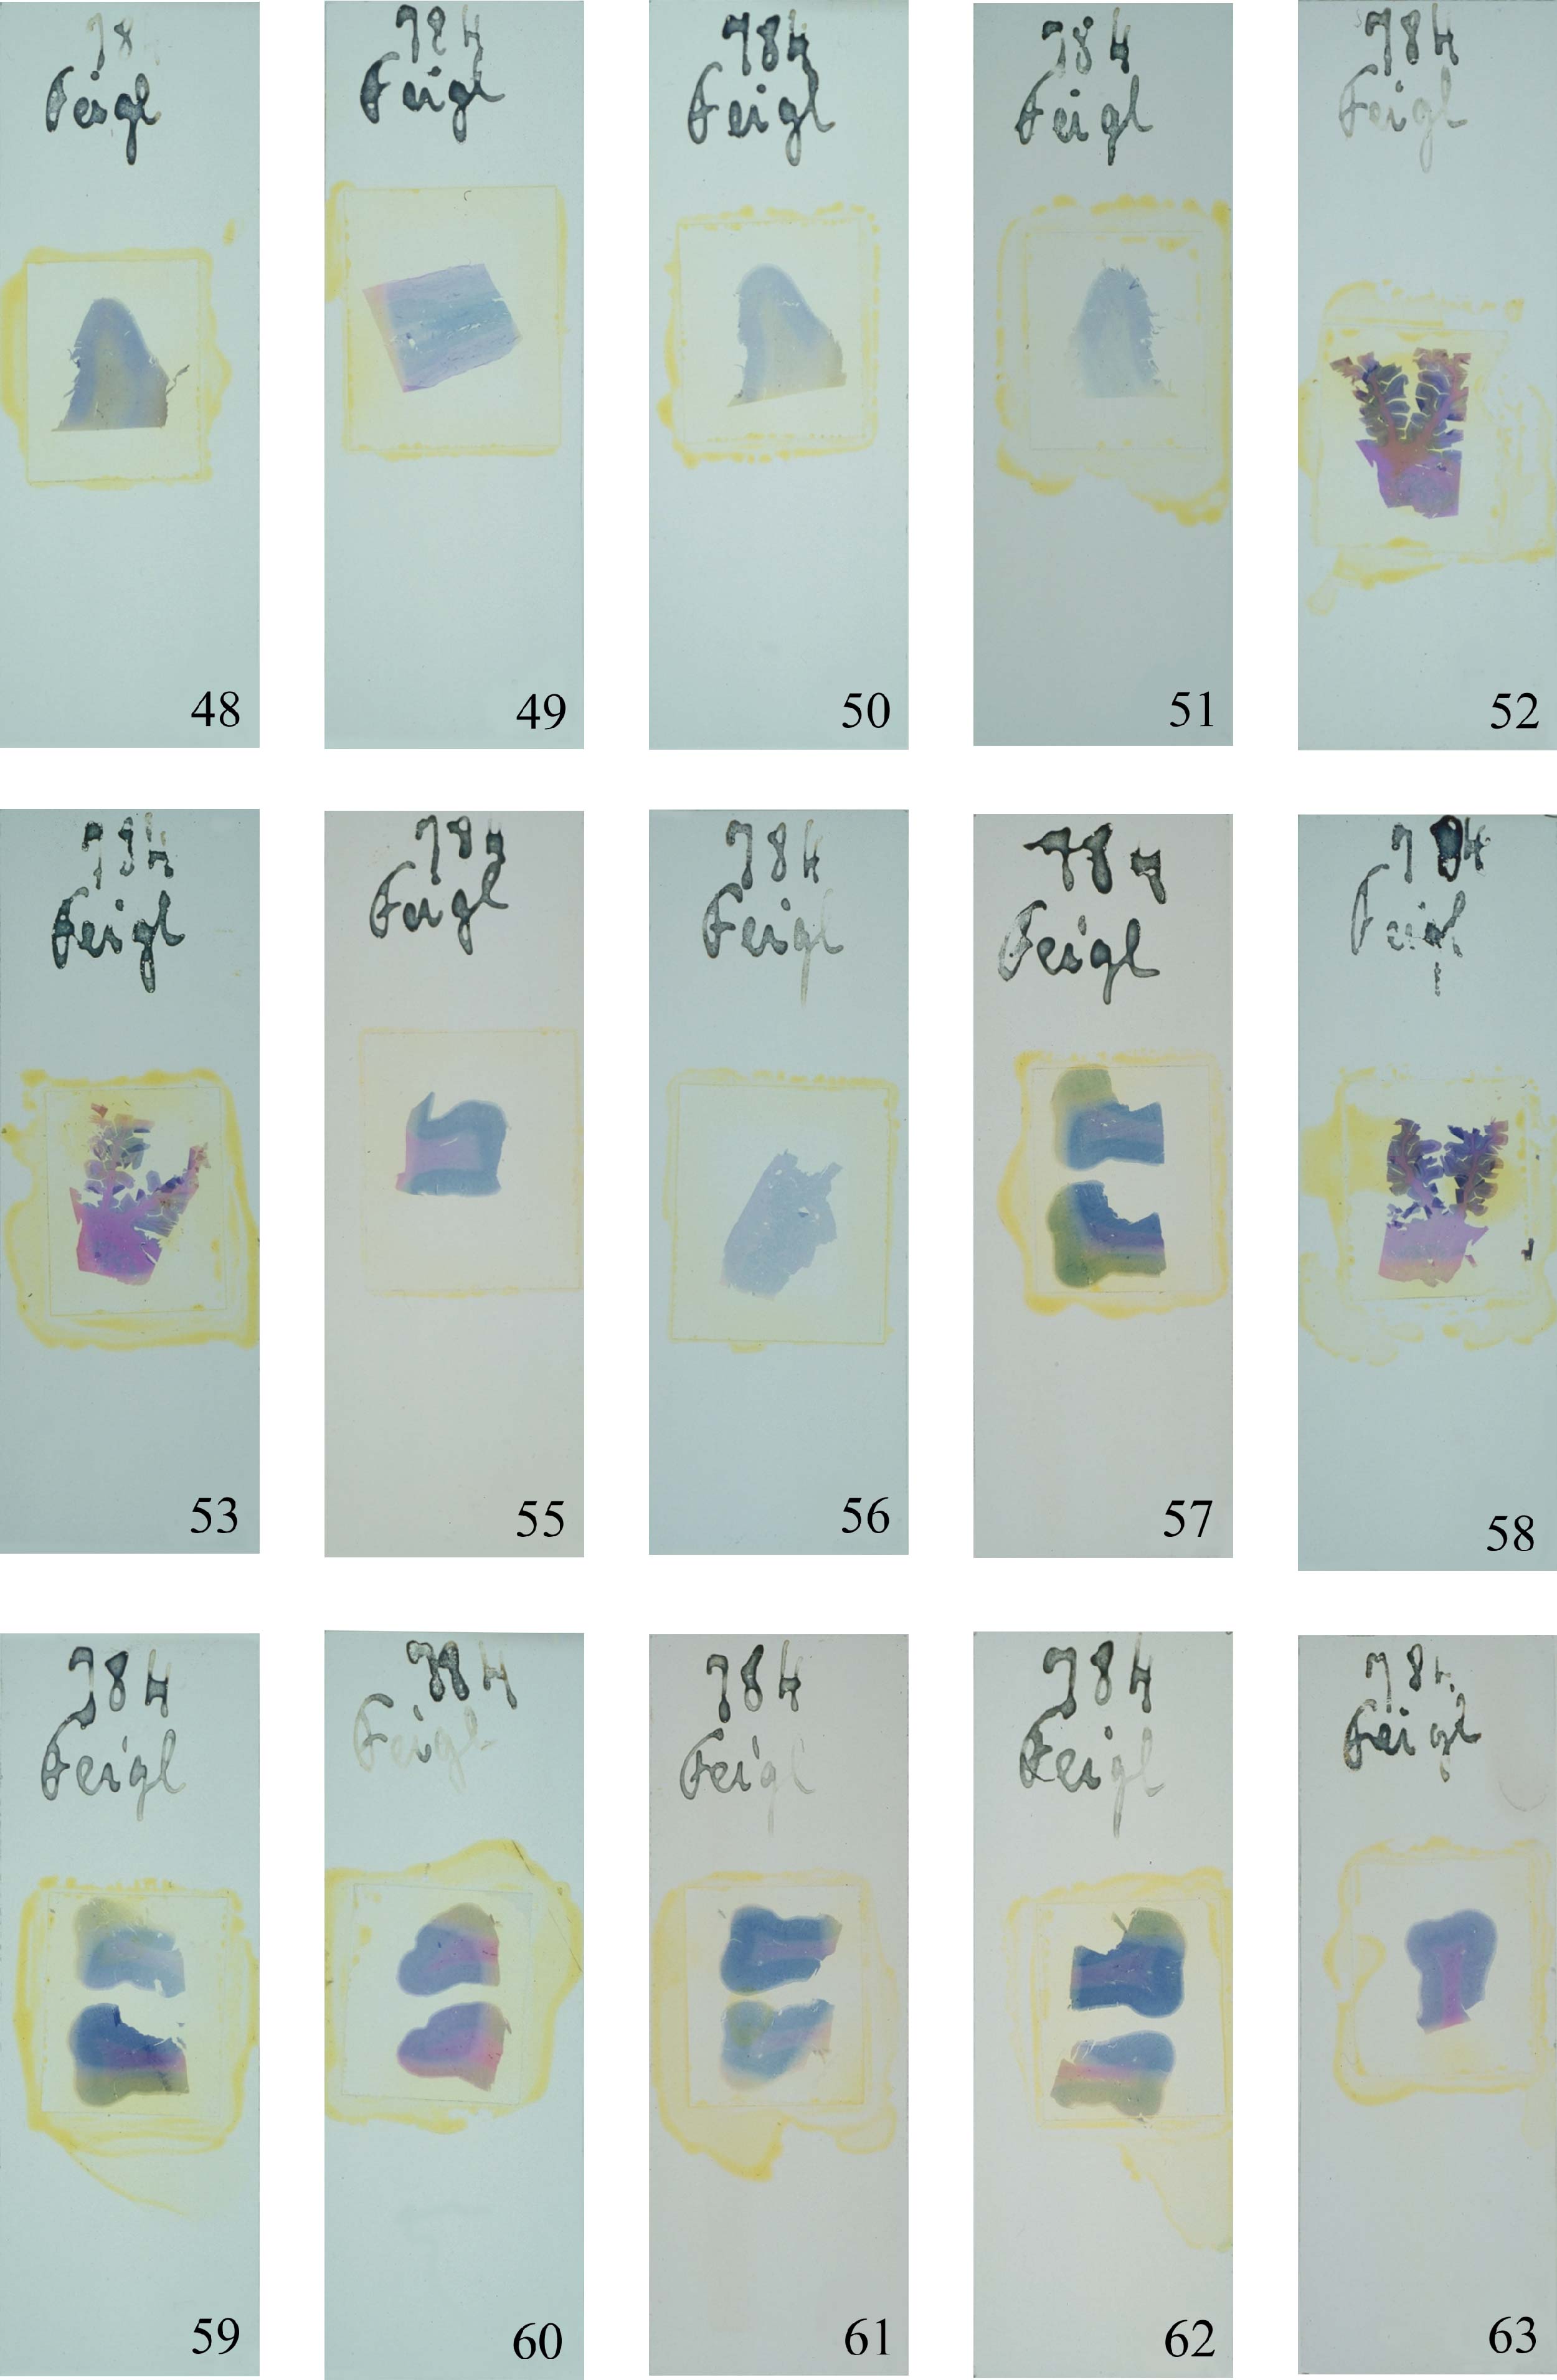 784
Feigl
48
784
Feigl
49
784
Feigl
50
784
Feigl
51
784
Feigl
52
784
Feigl
53
784
Feigl
55
784
Feigl
56
784
Feigl
57
784
Feigl
58
784
Feigl
59
784
Feigl
60
784
Feigl
61
784
Feigl
62
784
Feigl
63